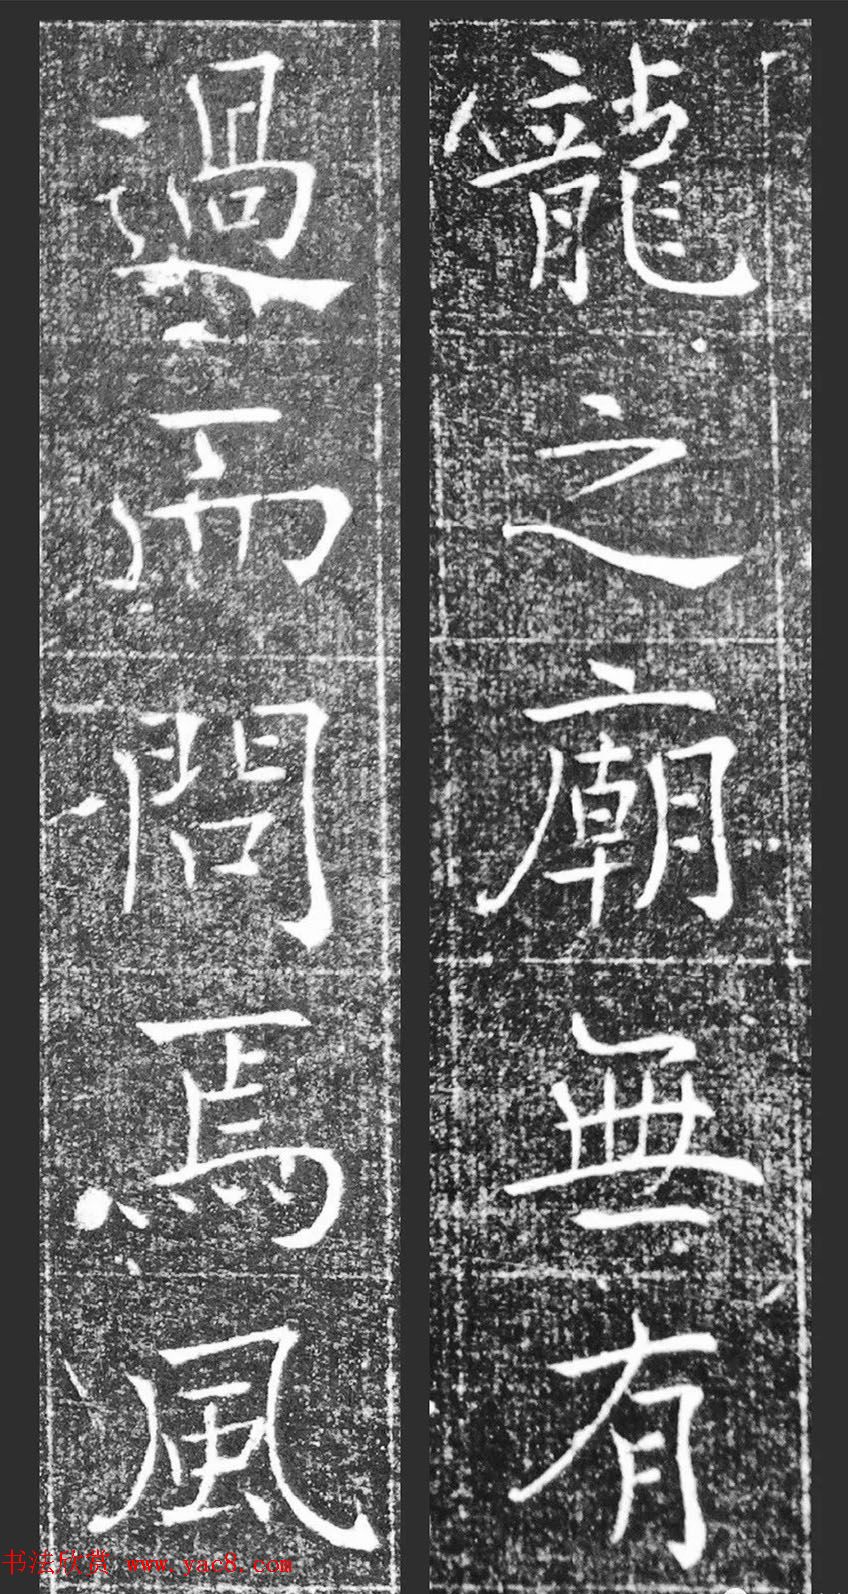 龍之廟無有
過而問焉風
书法欣赏 www.yac8.com